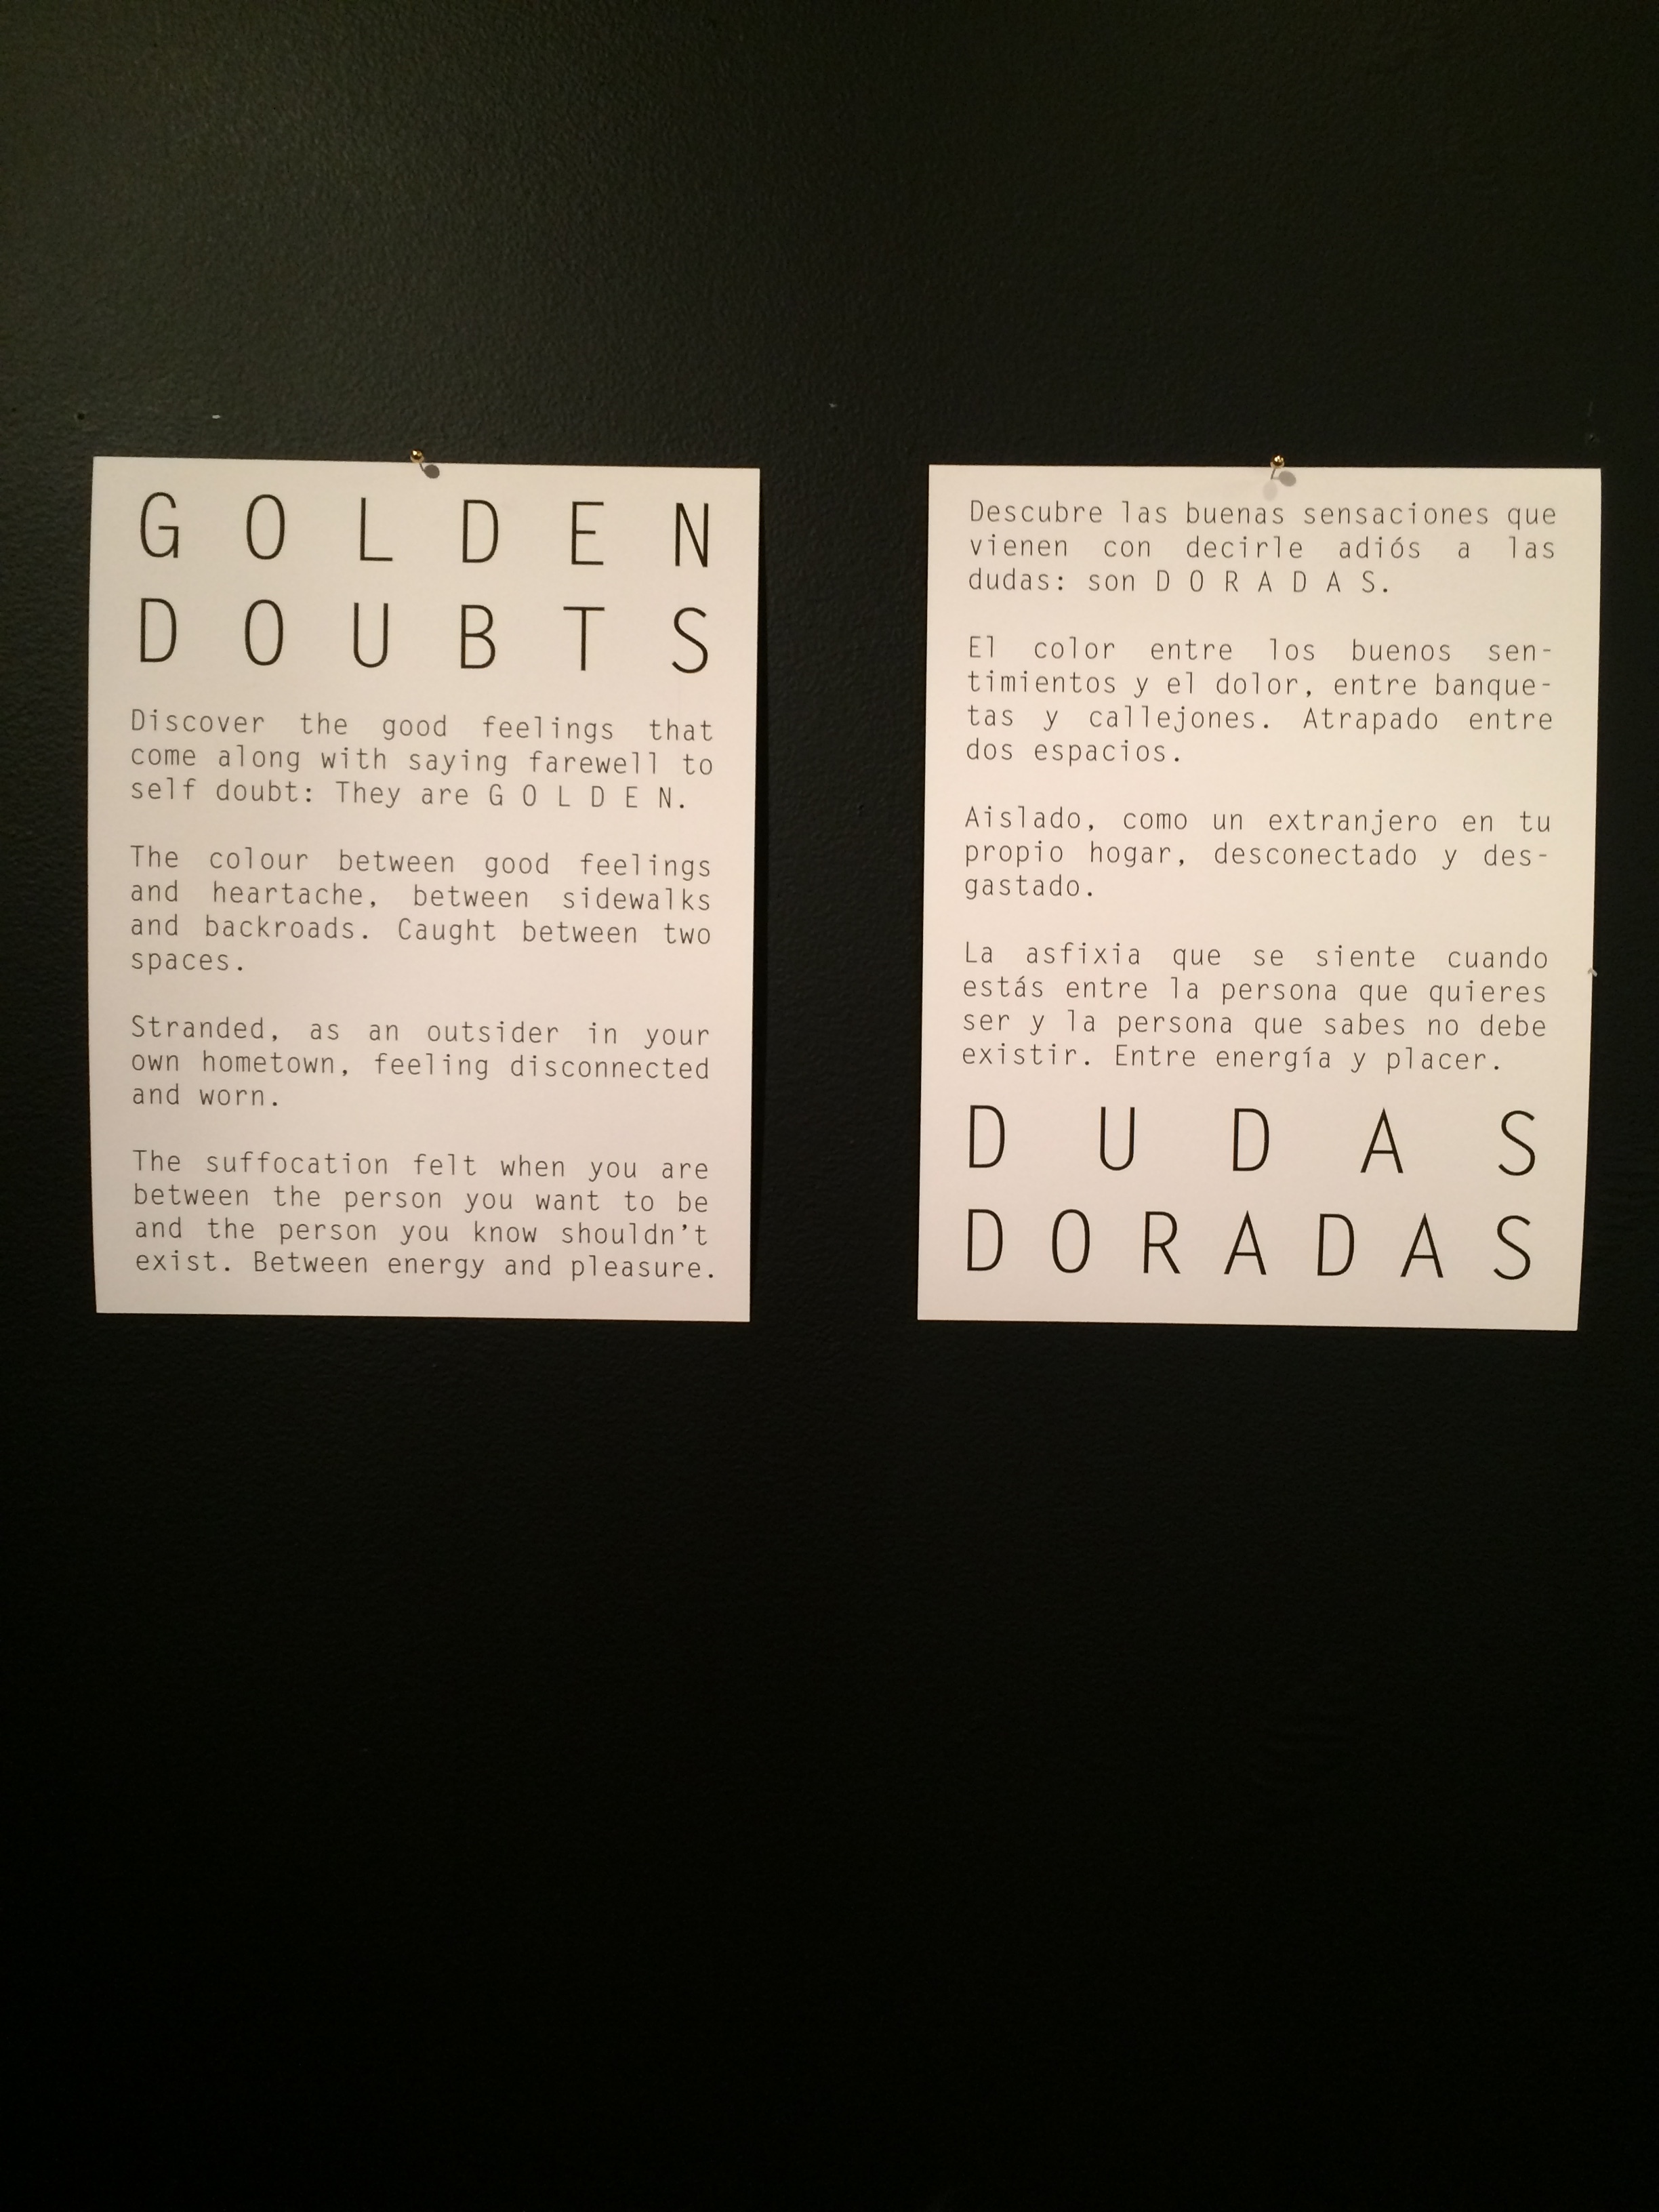 G O L D E N
D O U B T S
Discover the good feelings that
come along with saying farewell to
self doubt: They are G O L D E N.
The colour between good feelings
and heartache, between sidewalks
and backroads. Caught between two
spaces.
Stranded, as an outsider in your
own hometown, feeling disconnected
and worn.
The suffocation felt when you are
between the person you want to be
and the person you know shouldn't
exist. Between energy and pleasure.
Descubre las buenas sensaciones que
vienen con decirle adiós a las
dudas: son D O R A D A S.
El color entre los buenos sen-
timientos y el dolor, entre banque-
tas y callejones. Atrapado entre
dos espacios.
Aislado, como un extranjero en tu
propio hogar, desconectado y des-
gastado.
La asfixia que se siente cuando
estás entre la persona que quieres
ser y la persona que sabes no debe
existir. Entre energía y placer.
D U D A S
D O R A D A S